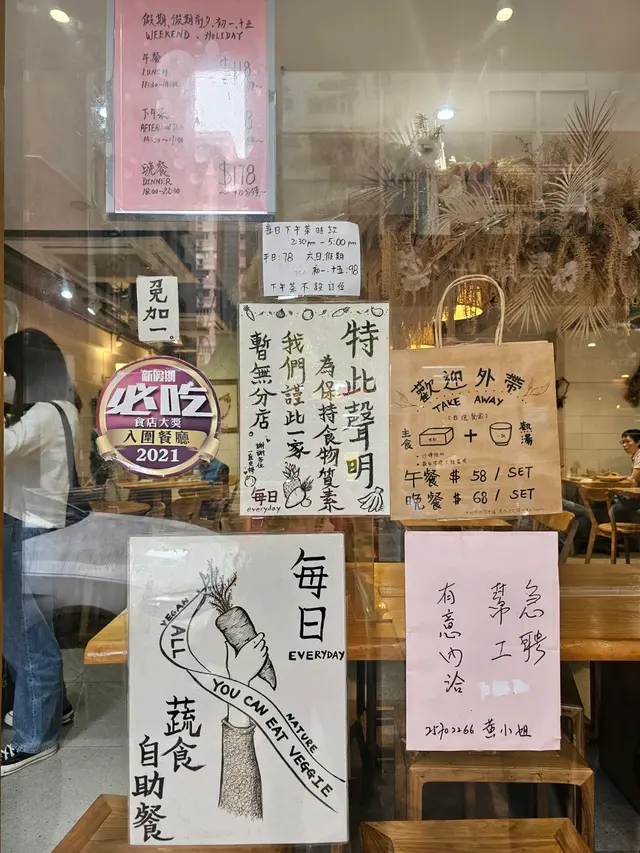 假期,假期前夕,初一、十五
WEEKEND、HOLIDAY
午餐
LUNCH
$118
下午茶
晚餐
DINNER
$178
每日下午茶時段
2:30pm - 5:00pm
平日:78 六日,假期
初一、十五:98
下午茶不設訂位
免加一。
新假期
必吃
食店大獎
入圍餐廳
2021
特此聲明
為保持食物質素
我們謹此一家
暫無分店。
每日
everyday
歡迎外帶
TAKE AWAY
主食
+
熱湯
午餐 $ 58 / SET
晚餐 $ 68 / SET
每日
EVERYDAY
VEGAN
ALL YOU CAN EAT VEGGIE
NATURE
蔬食
自助餐
急聘
幫工
有意內洽
黃小姐